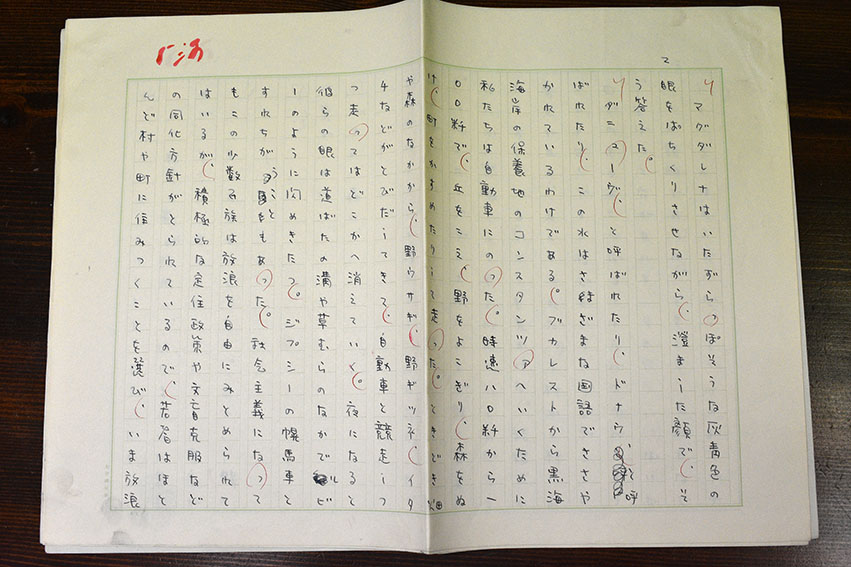 2
マグダレナはいたずらっぽそうな灰青色の
眼をぱちくりさせながら、澄ました顔で、そ
う答えた。
ダニューヴ、と呼ばれたり、ドナウ、と呼
ばれたり、この水はさまざまな国語でささや
かれているわけである。ブカレストから黒海
海岸の保養地のコンスタンツァへいくために
私たちは自動車にのった。時速八〇粁から一
〇〇粁で、丘をこえ、野をよこぎり、森をぬ
け、町をかすめたりして走った。ときどき畑
や森のなかから、野ウサギ、野ギツネ、イタ
チなどがとびだしてきて、自動車と競走しつ
つ走ってはどこかへ消えていく。夜になると
彼らの眼は道ばたの溝や草むらのなかでルビ
ーのように閃めきたつ。ジプシーの幌馬車と
すれちがうこともあった。社会主義になって
もこの少数民族は放浪を自由にみとめられて
はいるが、積極的な定住政策や文盲克服など
の同化方針がとられているので、若者はほと
んど村や町に住みつくことを選び、いま放浪